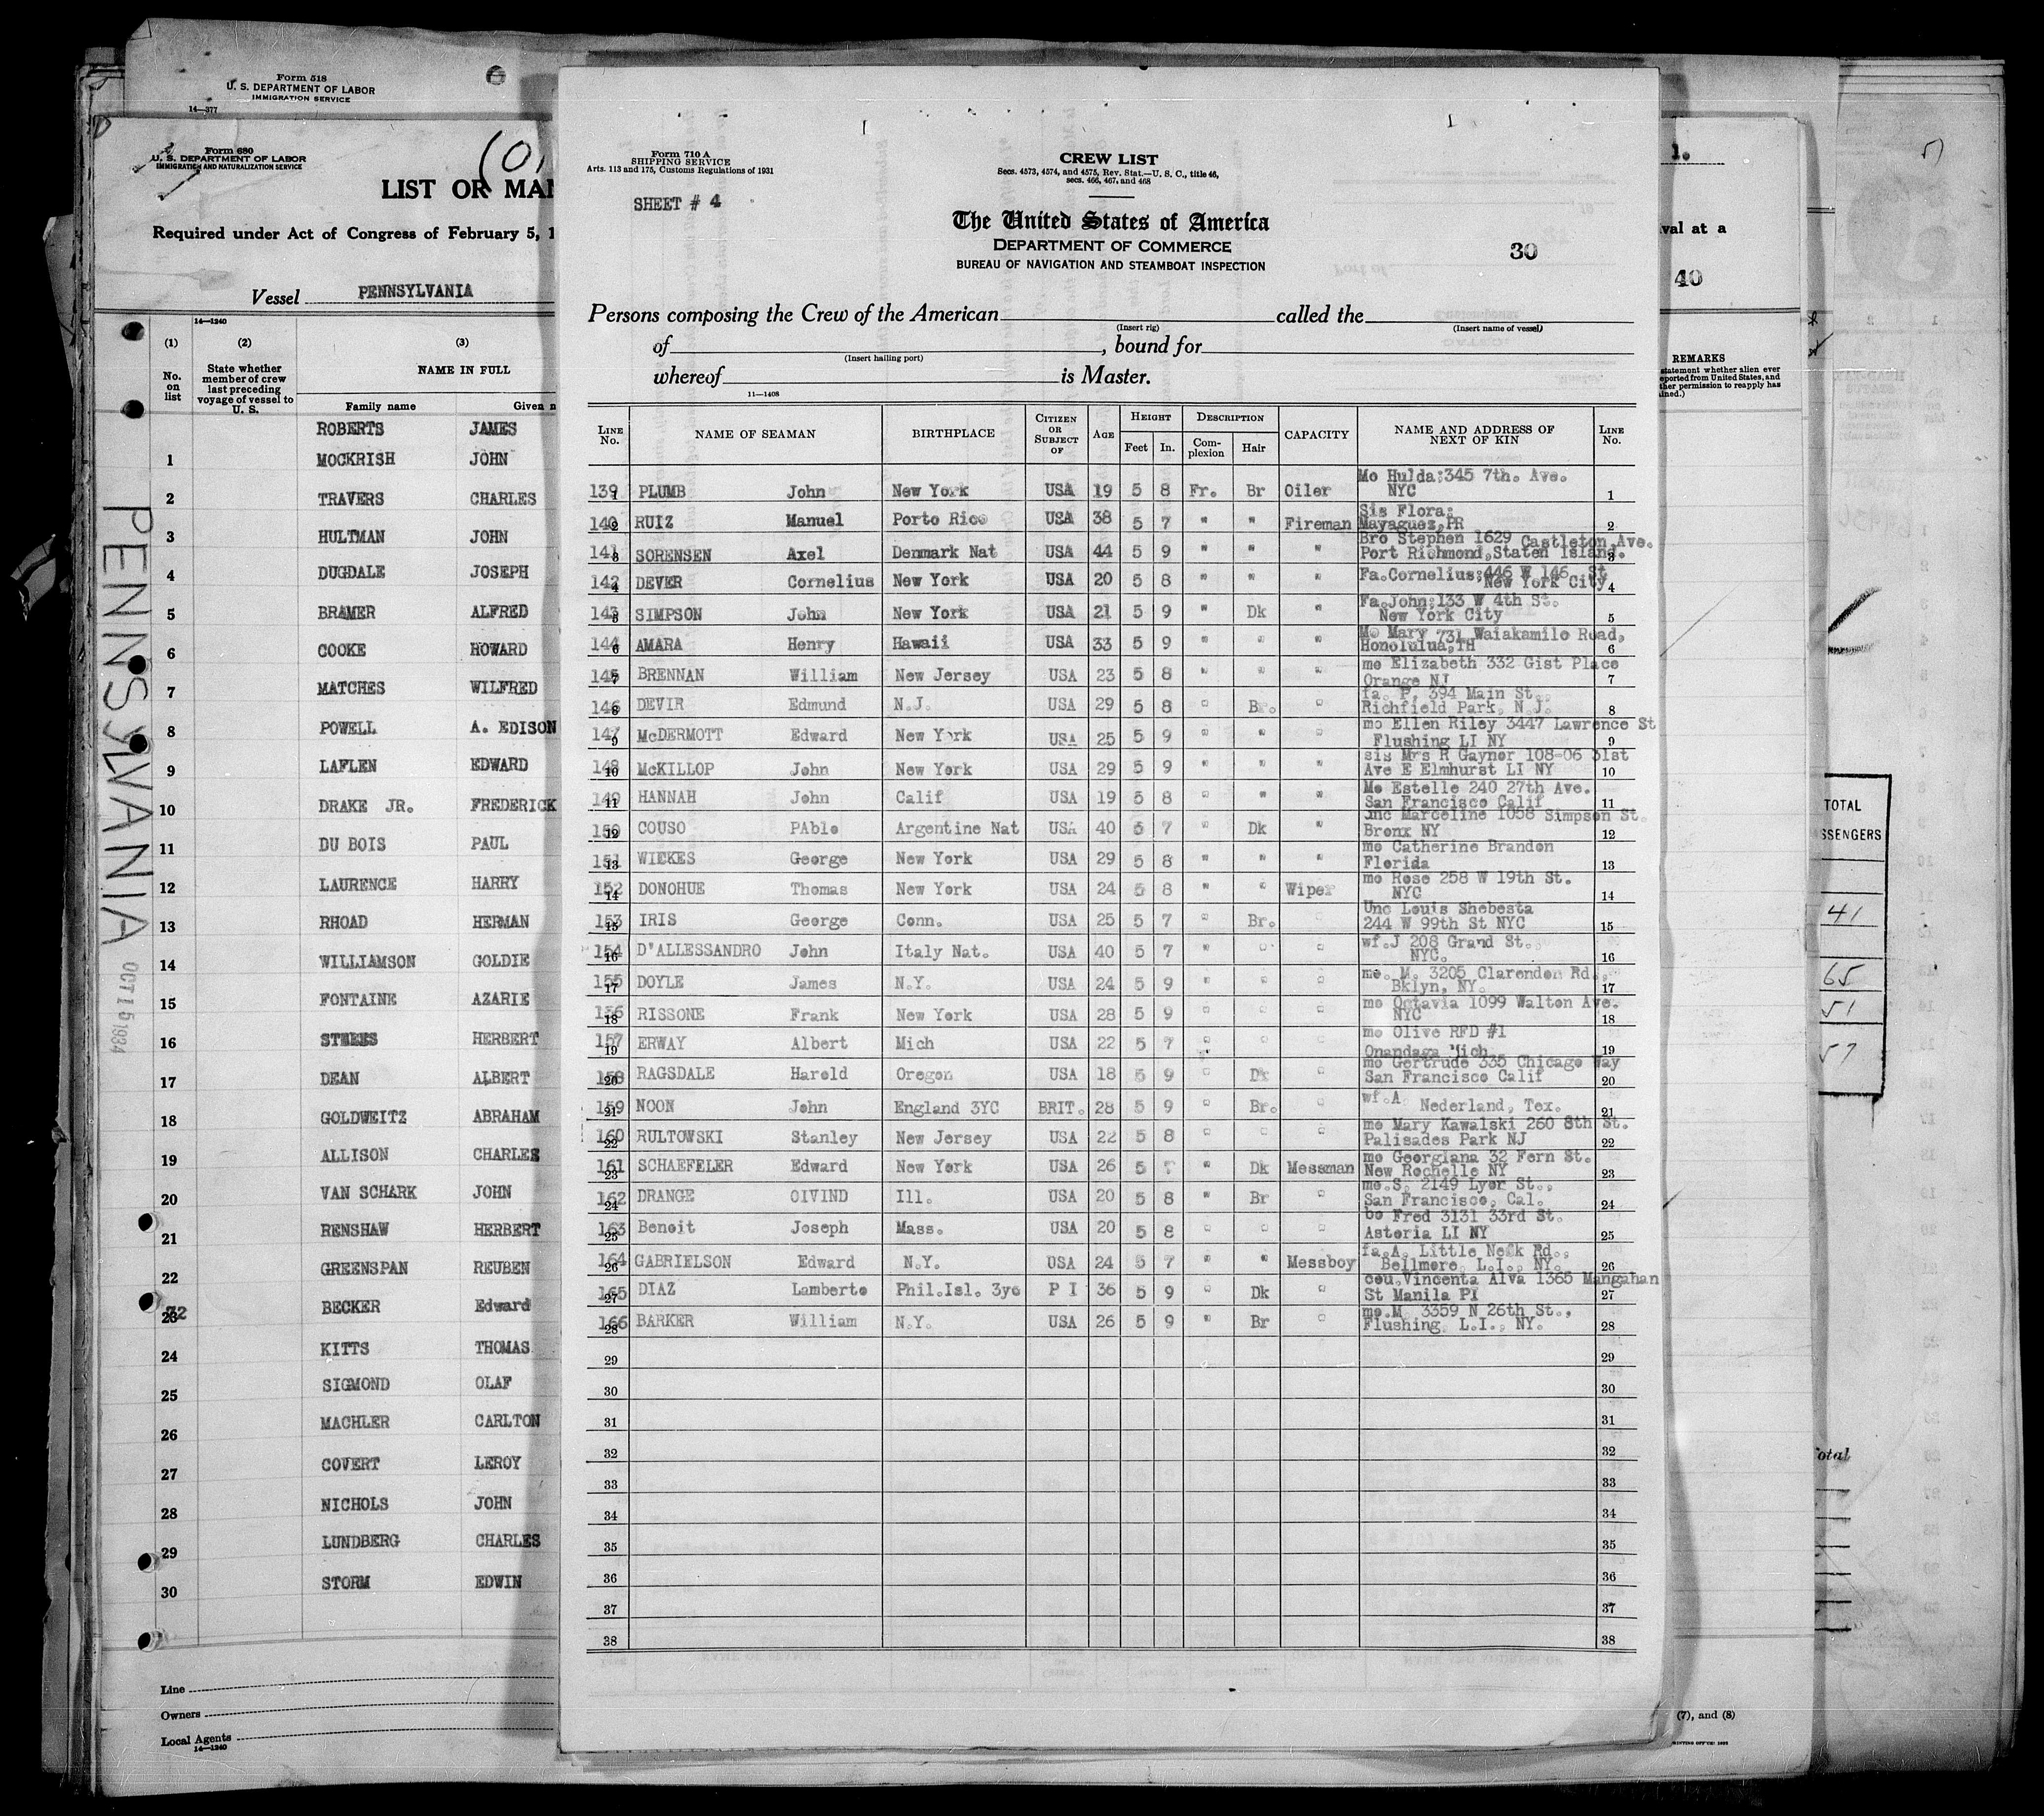 Form 518
U. S. DEPARTMENT OF LABOR
IMMIGRATION SERVICE
14—377
Form 680
U. S. DEPARTMENT OF LABOR
IMMIGRATION AND NATURALIZATION SERVICE
LIST OR MAN
Required under Act of Congress of February 5, 1
Vessel PENNSYLVANIA
14—1240
(1) (2) (3)
No. on list
State whether member of crew last preceding voyage of vessel to U. S.
NAME IN FULL
Family name Given n
ROBERTS JAMES
1 MOCKRISH JOHN
2 TRAVERS CHARLES
3 HULTMAN JOHN
4 DUGDALE JOSEPH
5 BRAMER ALFRED
6 COOKE HOWARD
7 MATCHES WILFRED
8 POWELL A. EDISON
9 LAFLEN EDWARD
10 DRAKE JR. FREDERICK
11 DU BOIS PAUL
12 LAURENCE HARRY
13 RHOAD HERMAN
14 WILLIAMSON GOLDIE
15 FONTAINE AZARIE
16 HERBERT
17 DEAN ALBERT
18 GOLDWEITZ ABRAHAM
19 ALLISON CHARLES
20 VAN SCHARK JOHN
21 RENSHAW HERBERT
22 GREENSPAN REUBEN
23 BECKER Edward
24 KITTS THOMAS
25 SIGMOND OLAF
26 MACHLER CARLTON
27 COVERT LEROY
28 NICHOLS JOHN
29 LUNDBERG CHARLES
30 STORM EDWIN
Line
Owners
Local Agents
14—1240
PENNSYLVANIA
OCT 15 1934
Form 710 A
SHIPPING SERVICE
Arts. 113 and 175, Customs Regulations of 1931
SHEET # 4
CREW LIST
Secs. 4573, 4574, and 4575, Rev. Stat.—U. S. C., title 46,
secs. 466, 467, and 468
The United States of America
DEPARTMENT OF COMMERCE
BUREAU OF NAVIGATION AND STEAMBOAT INSPECTION
30
Persons composing the Crew of the American called the
(Insert rig) (Insert name of vessel)
of , bound for
(Insert hailing port)
whereof is Master.
11—1408
LINE No. NAME OF SEAMAN BIRTHPLACE CITIZEN OR SUBJECT OF AGE HEIGHT Feet In. DESCRIPTION Complexion Hair CAPACITY NAME AND ADDRESS OF NEXT OF KIN LINE No.
139 1 PLUMB John New York USA 19 5 8 Fr. Br Oiler Mo Hulda:345 7th. Ave. NYC 1
140 2 RUIZ Manuel Porto Rico USA 38 5 7 " " Fireman Sis Flora: Mayaguez,PR 2
141 3 SORENSEN Axel Denmark Nat USA 44 5 9 " " " Bro Stephen 1629 Castleton Ave. Port Richmond,Staten Island. 3
142 4 DEVER Cornelius New York USA 20 5 8 " " " Fa.Cornelius:446 W 146 St New York City 4
143 5 SIMPSON John New York USA 21 5 9 " Dk " Fa.John:133 W 4th St. New York City 5
144 6 AMARA Henry Hawaii USA 33 5 9 " " " Mo Mary 731 Waiakamilo Road, Honolulua,TH 6
145 7 BRENNAN William New Jersey USA 23 5 8 " " " mo Elizabeth 332 Gist Place Orange NJ 7
146 8 DEVIR Edmund N.J. USA 29 5 8 " Br. " fa. P. 394 Main St. Richfield Park, N.J. 8
147 9 McDERMOTT Edward New York USA 25 5 9 " " " mo Ellen Riley 3447 Lawrence St Flushing LI NY 9
148 10 McKILLOP John New York USA 29 5 9 " " " sis Mrs R Gaynor 108-06 31st Ave E Elmhurst LI NY 10
149 11 HANNAH John Calif USA 19 5 8 " " " Mo Estelle 240 27th Ave. San Francisco Calif 11
150 12 COUSO PAblo Argentine Nat USA 40 5 7 " Dk " unc Marceline 1058 Simpson St. Bronx NY 12
151 13 WICKES George New York USA 29 5 8 " " " mo Catherine Brandon Florida 13
152 14 DONOHUE Thomas New York USA 24 5 8 " " Wiper mo Rose 258 W 19th St. NYC 14
153 15 IRIS George Conn. USA 25 5 7 " Br. " Unc Louis Shebesta 244 W 99th St NYC 15
154 16 D'ALLESSANDRO John Italy Nat. USA 40 5 7 " " " wf.J 208 Grand St. NYC. 16
155 17 DOYLE James N.Y. USA 24 5 9 " " " mo. M. 3205 Clarendon Rd. Bklyn, NY. 17
156 18 RISSONE Frank New York USA 28 5 9 " " " mo Octavia 1099 Walton Ave. NYC 18
157 19 ERWAY Albert Mich USA 22 5 7 " " " mo Olive RFD #1 Onandaga Mich 19
158 20 RAGSDALE Harold Oregon USA 18 5 9 " Dk " mo Gertrude 335 Chicago Way San Francisco Calif 20
159 21 NOON John England 3YC BRIT. 28 5 9 " Br. " wf.A Nederland, Tex. 21
160 22 RULTOWSKI Stanley New Jersey USA 22 5 8 " " " mo Mary Kawalski 260 8th St. Palisades Park NJ 22
161 23 SCHAEFELER Edward New York USA 26 5 7 " Dk Messman mo Georgiana 32 Fern St. New Rochelle NY 23
162 24 DRANGE OIVIND Ill. USA 20 5 8 " Br " mo.S. 2149 Lyor St., San Francisco, Cal. 24
163 25 Benoit Joseph Mass. USA 20 5 8 " " " bo Fred 3131 33rd St. Astoria LI NY 25
164 26 GABRIELSON Edward N.Y. USA 24 5 7 " " Messboy fa.A. Little Neck Rd., Bellmore, L.I., NY. 26
165 27 DIAZ Lamberto Phil.Isl. 3yc P I 36 5 9 " Dk " cou.Vincenta Alva 1365 Mangahan St Manila PI 27
166 28 BARKER William N.Y. USA 26 5 9 " Br " mo.M 3359 N 26th St., Flushing, L.I., NY. 28
29 29
30 30
31 31
32 32
33 33
34 34
35 35
36 36
37 37
38 38
1.
val at a
40
REMARKS
TOTAL
SSENGERS
41
65
51
57
otal
(7), and (8)